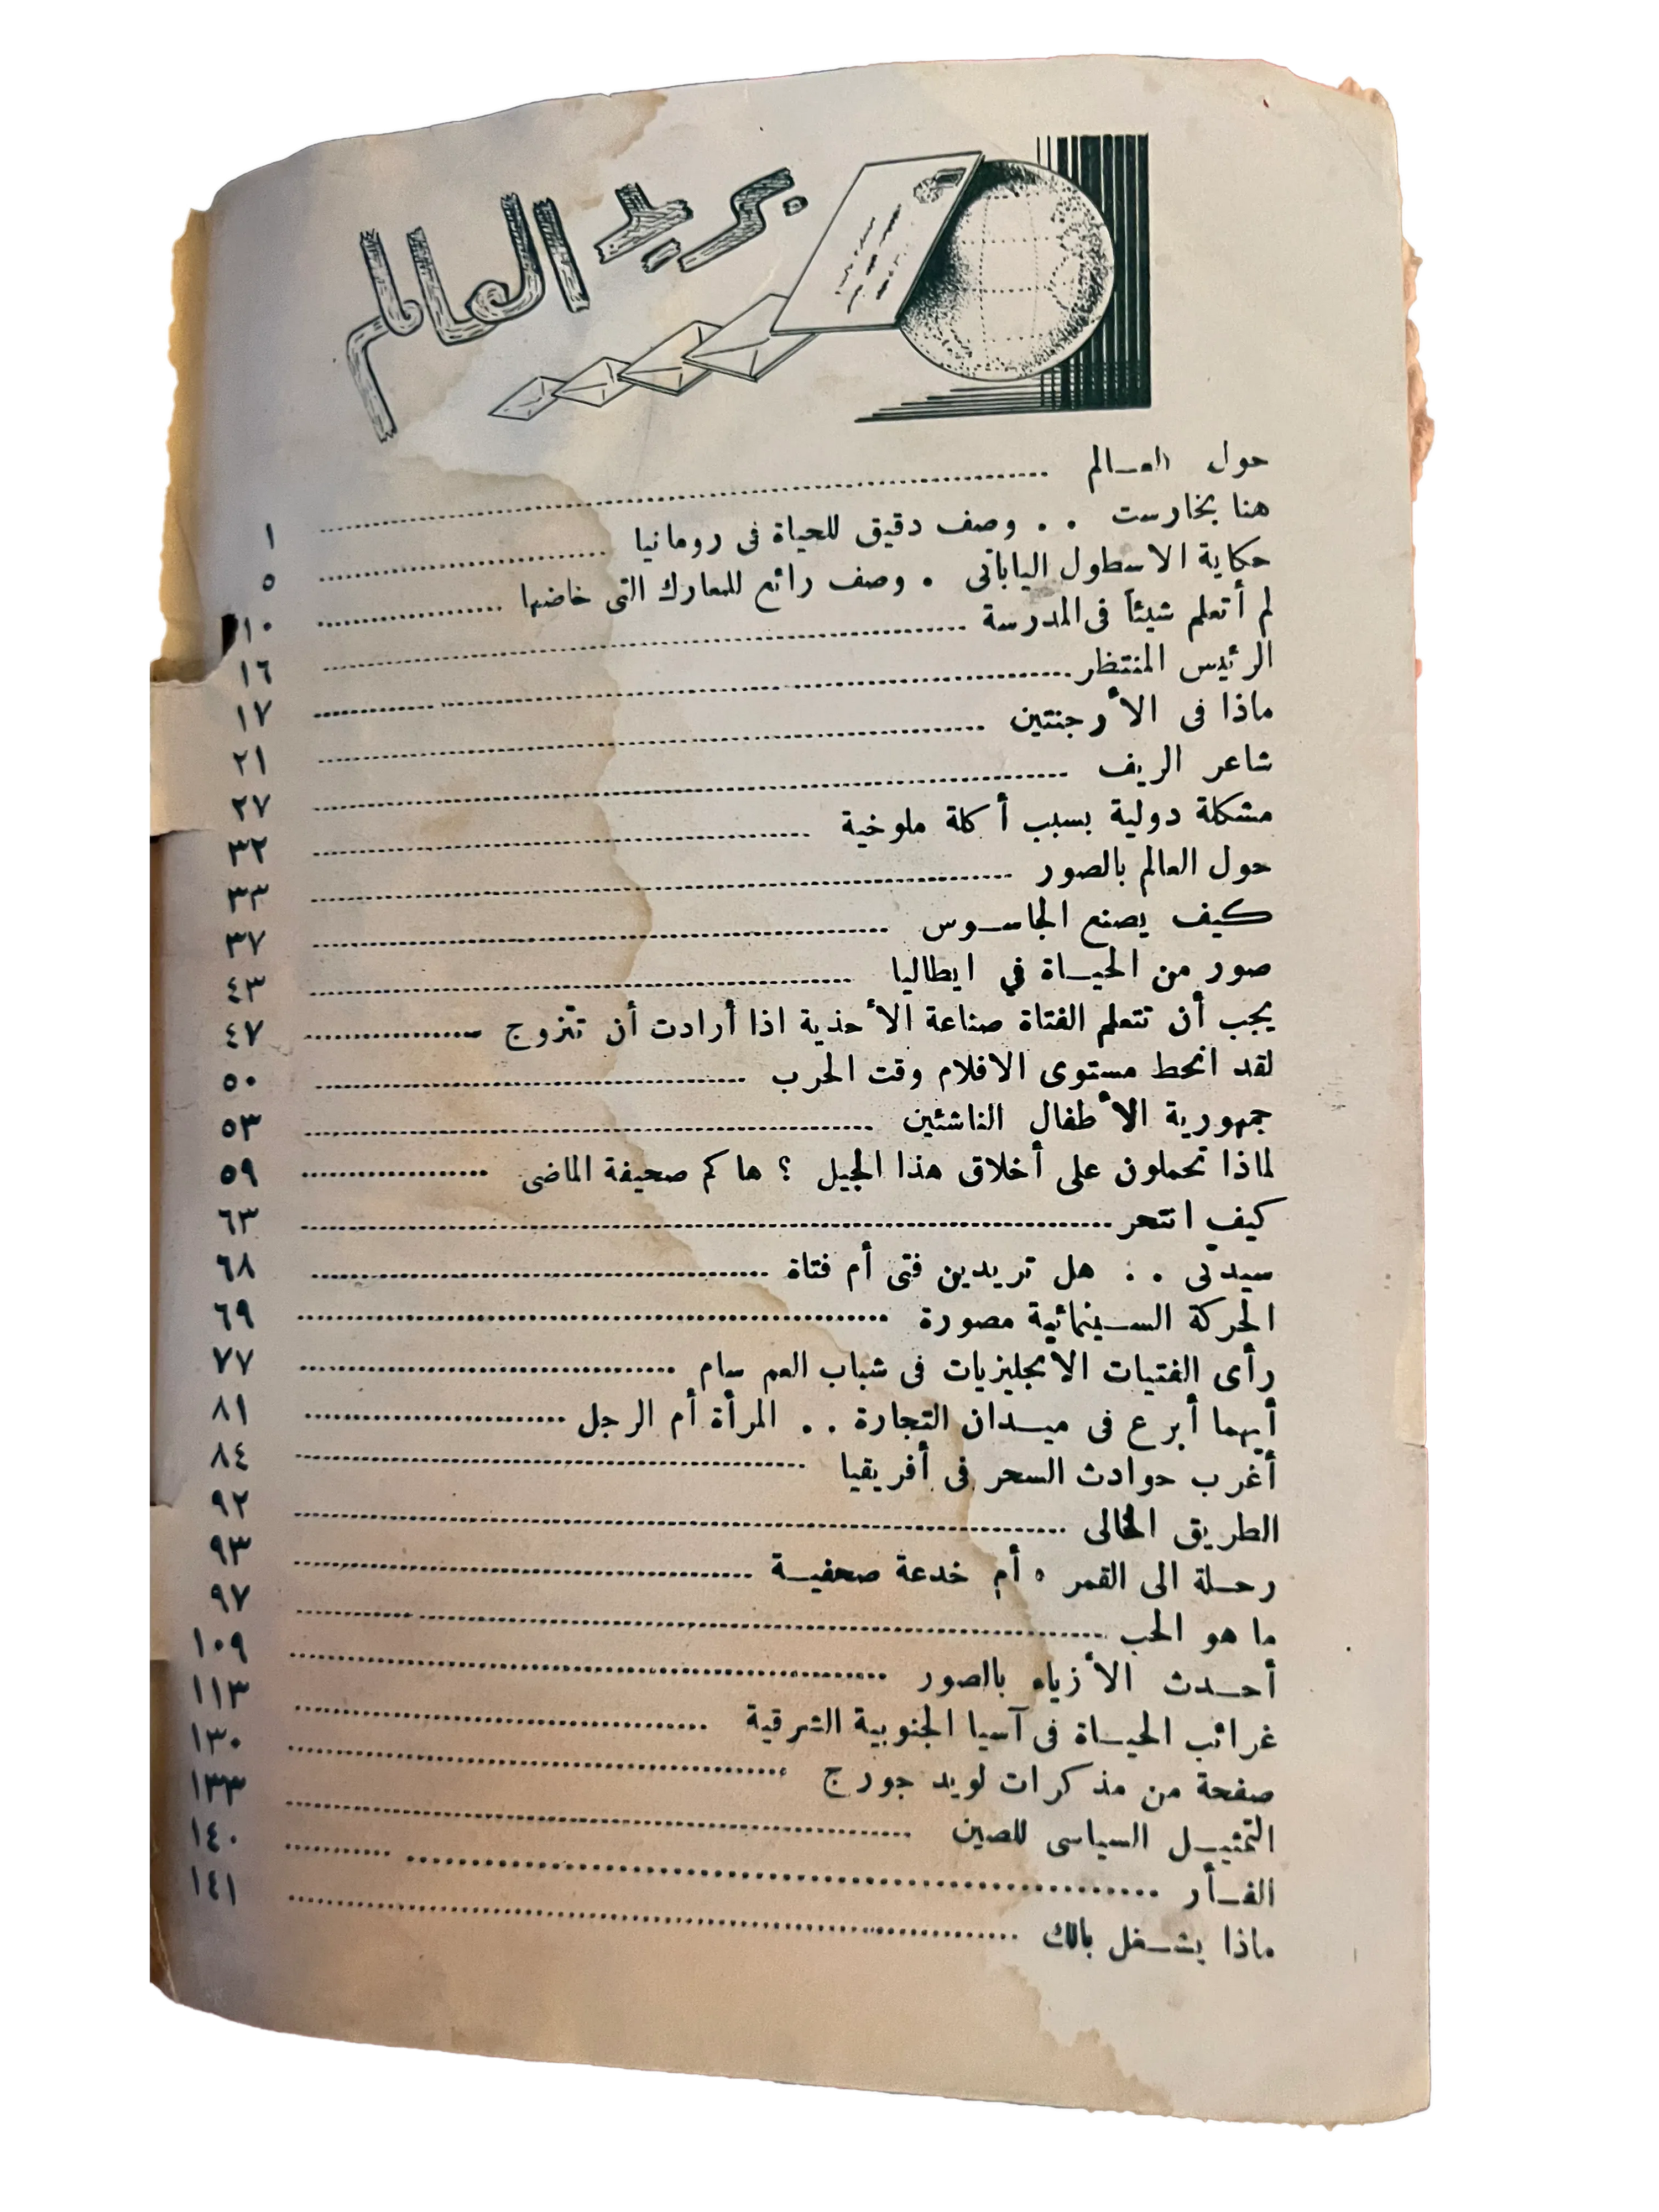 بريد العالم
حول العــالم ........ ١
هنا بخارست . . وصف دقيق للحياة فى رومانيا ........ ٥
حكاية الاسطول اليابانى . وصف رائع للمعارك التى خاضها ........ ١٠
لم أتعلم شيئاً فى المدرسة ........ ١٦
الرئيس المنتظر ........ ١٧
ماذا فى الأرجنتين ........ ٢١
شاعر الريف ........ ٢٧
مشكلة دولية بسبب أكلة ملوخية ........ ٣٢
حول العالم بالصور ........ ٣٣
كيف يصنع الجاســوس ........ ٣٧
صور من الحيــاة في ايطاليا ........ ٤٣
يجب أن تتعلم الفتاة صناعة الأحذية اذا أرادت أن تتزوج ........ ٤٧
لقد انحط مستوى الافلام وقت الحرب ........ ٥٠
جمهورية الأطفال الناشئين ........ ٥٣
لماذا تحملون على أخلاق هذا الجيل ؟ هاكم صحيفة الماضى ........ ٥٩
كيف انتحر ........ ٦٣
سيدتى . . هل تريدين فتى أم فتاة ........ ٦٨
الحركة الســينمائية مصورة ........ ٦٩
رأى الفتيات الانجليزيات فى شباب العم سام ........ ٧٧
أيهما أبرع فى ميــدان التجارة . . المرأة أم الرجل ........ ٨١
أغرب حوادث السحر فى أفريقيا ........ ٨٤
الطريق الخالى ........ ٩٢
رحــلة الى القمر ٥ أم خدعة صحفيــة ........ ٩٣
ما هو الحب ........ ٩٧
أحــدث الأزياء بالصور ........ ١٠٩
غرائب الحيــاة فى آسيا الجنوبية الشرقية ........ ١١٣
صفحة من مذكرات لويد جورج ........ ١٣٠
التمثيــل السياسى للصين ........ ١٣٣
الفــأر ........ ١٤٠
ماذا يشــغل بالك ........ ١٤١